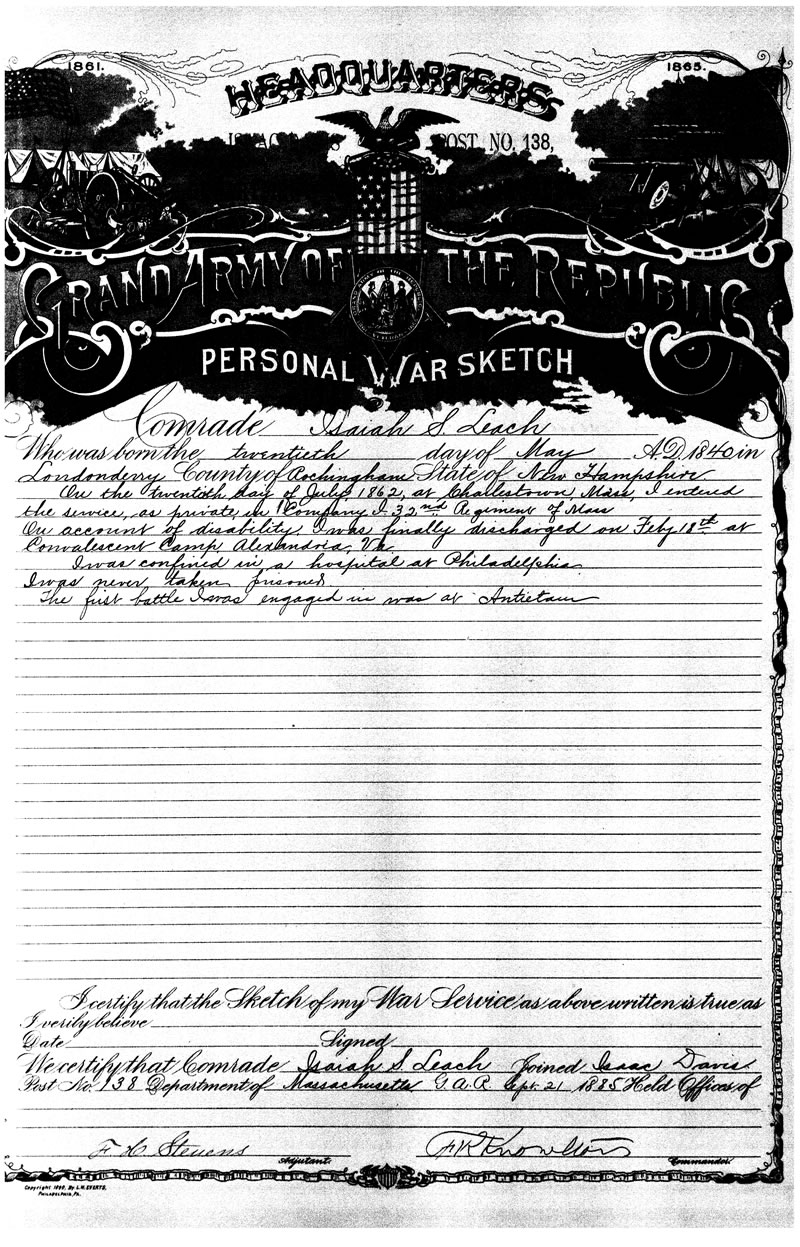 1861.
1865.
HEADQUARTERS
POST NO. 138,
GRAND ARMY OF THE REPUBLIC
PERSONAL WAR SKETCH
Comrade Isaiah S. Leach
Who was born the twentieth day of May A.D. 1840 in
Londonderry County of Rockingham State of New Hampshire.
On the twentieth day of July 1862, at Charlestown, Mass, I entered
the service, as private, in Company I 32nd Regiment of Mass
On account of disability, I was finally discharged on Feby 18th at
Convalescent Camp Alexandria, Va.
I was confined in a hospital at Philadelphia
I was never taken prisoner
The first battle I was engaged in was at Antietam
I certify that the Sketch of my War Service as above written is true as
I verily believe
Date Signed
We certify that Comrade Isaiah S. Leach Joined Isaac Davis
Post No. 138 Department of Massachusetts G.A.R. Sept. 21 1885 Held Offices of
F H Stevens
F K Knowlton
Adjutant.
Commander.
Copyright 1890, By L.H. EVERTS,
PHILADELPHIA, PA.